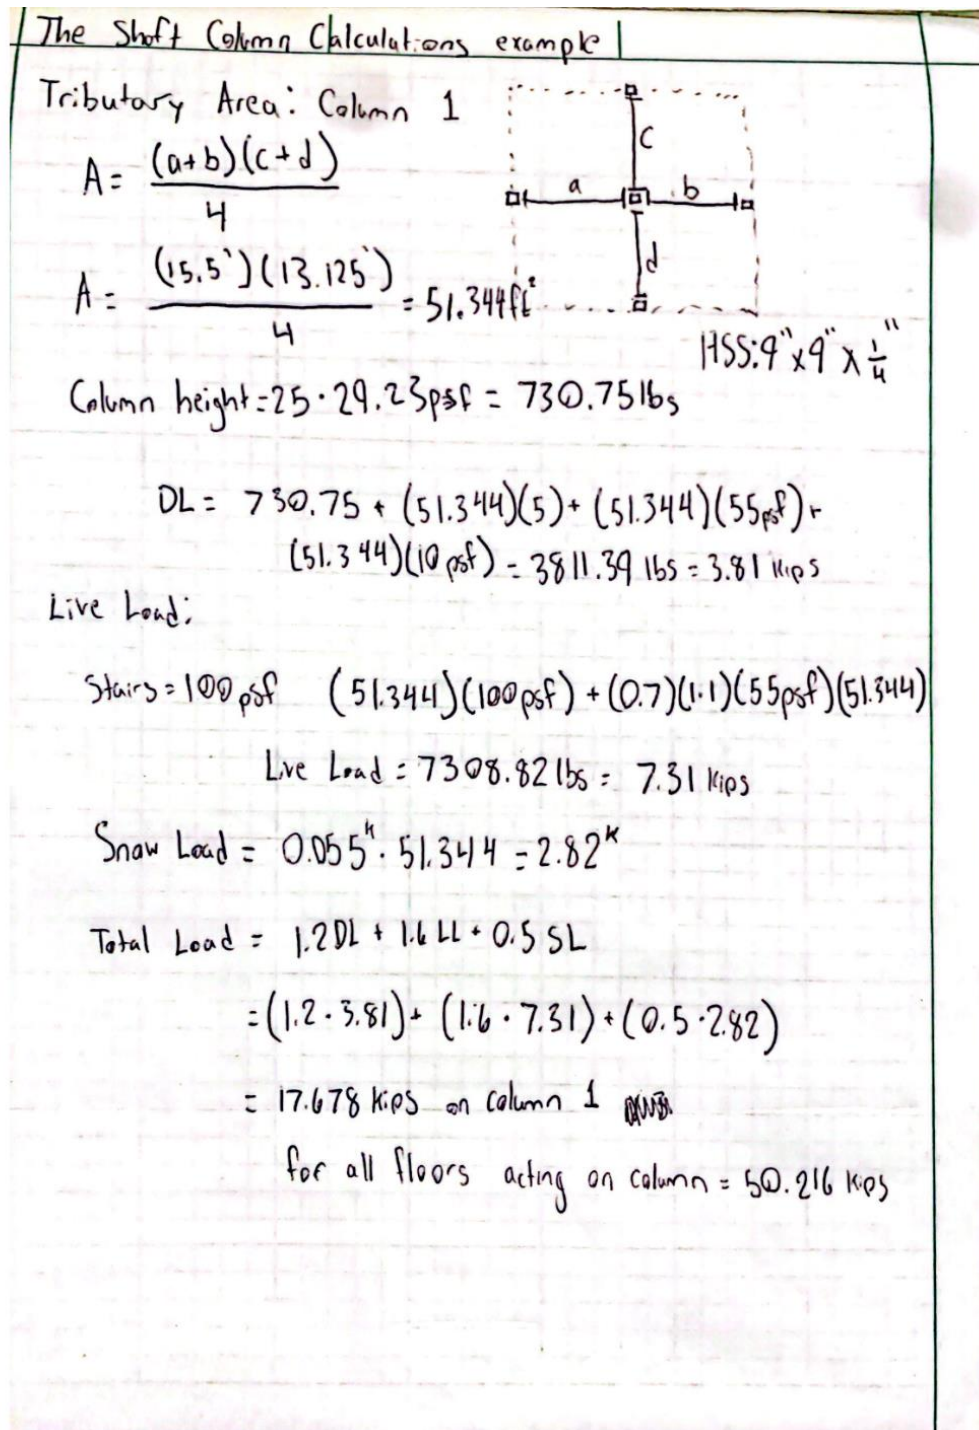 The Shaft Column Calculations example
Tributary Area: Column 1
A = (a+b)(c+d)
4
c
a
b
d
A = (15.5')(13.125') = 51.344ft²
4
HSS: 9" x 9" x 1/4"
Column height = 25 · 29.23psf = 730.75 lbs
DL = 730.75 + (51.344)(5) + (51.344)(55psf) +
(51.344)(10 psf) = 3811.39 lbs = 3.81 Kips
Live Load:
Stairs = 100 psf (51.344)(100 psf) + (0.7)(1.1)(55psf)(51.344)
Live Load = 7308.82 lbs = 7.31 Kips
Snow Load = 0.055ᵏ · 51.344 = 2.82ᵏ
Total Load = 1.2DL + 1.6 LL + 0.5 SL
= (1.2 · 3.81) + (1.6 · 7.31) + (0.5 · 2.82)
= 17.678 Kips on column 1
for all floors acting on column = 50.216 Kips